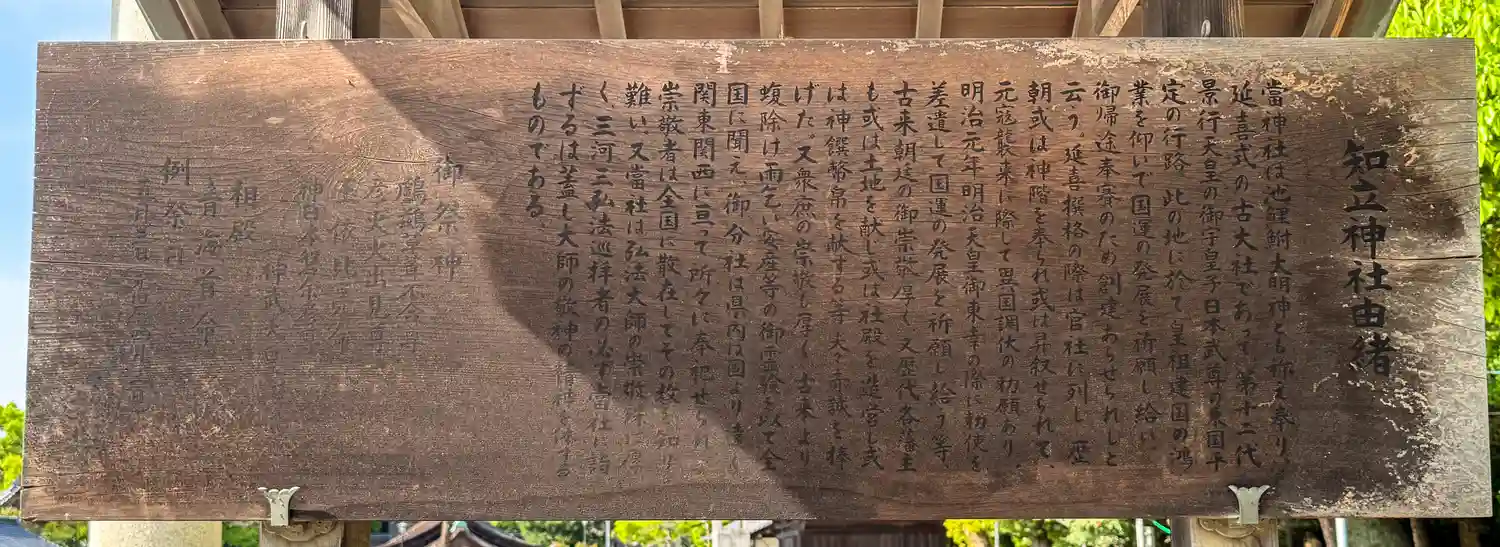 知立神社由緒
當神社は池鯉鮒大明神とも称え奉り、
延喜式の古大社であって第十二代
景行天皇の御宇皇子日本武尊の東国平
定の行路、此の地に於て皇祖建国の鴻
業を仰いで国運の発展を祈願し給い
御帰途奉賽のため創建あらせられしと
云う。延喜撰格の際は官社に列し、歴
朝或は神階を奉られ或は昇叙せられて、
元寇襲来に際して異国調伏の勅願あり、
明治元年明治天皇御東幸の際に勅使を
差遣して国運の発展を祈願し給う等、
古来朝廷の御崇敬厚く、又歴代各藩主
も或は土地を献じ或は社殿を造営し或
は神饌幣帛を献ずる等夫々赤誠を捧
げた。又衆庶の崇敬も厚く古来より
蝮除け雨乞い安産等の御霊驗を以て全
国に聞え、御分社は県内は固より
関東関西に亘って所々に奉祀せられ
崇敬者は全国に散在してその枚挙に
難い。又當社は弘法大師の崇敬殊に厚
く、三河三弘法巡拝者の必ず當社に詣
ずるは蓋し大師の敬神の精神を体する
ものである。
御祭神
鸕鶿草葺不合尊
彦火火出見尊
玉依比売命
神日本磐余彦尊
神武天皇
相殿
青海首命
例祭日